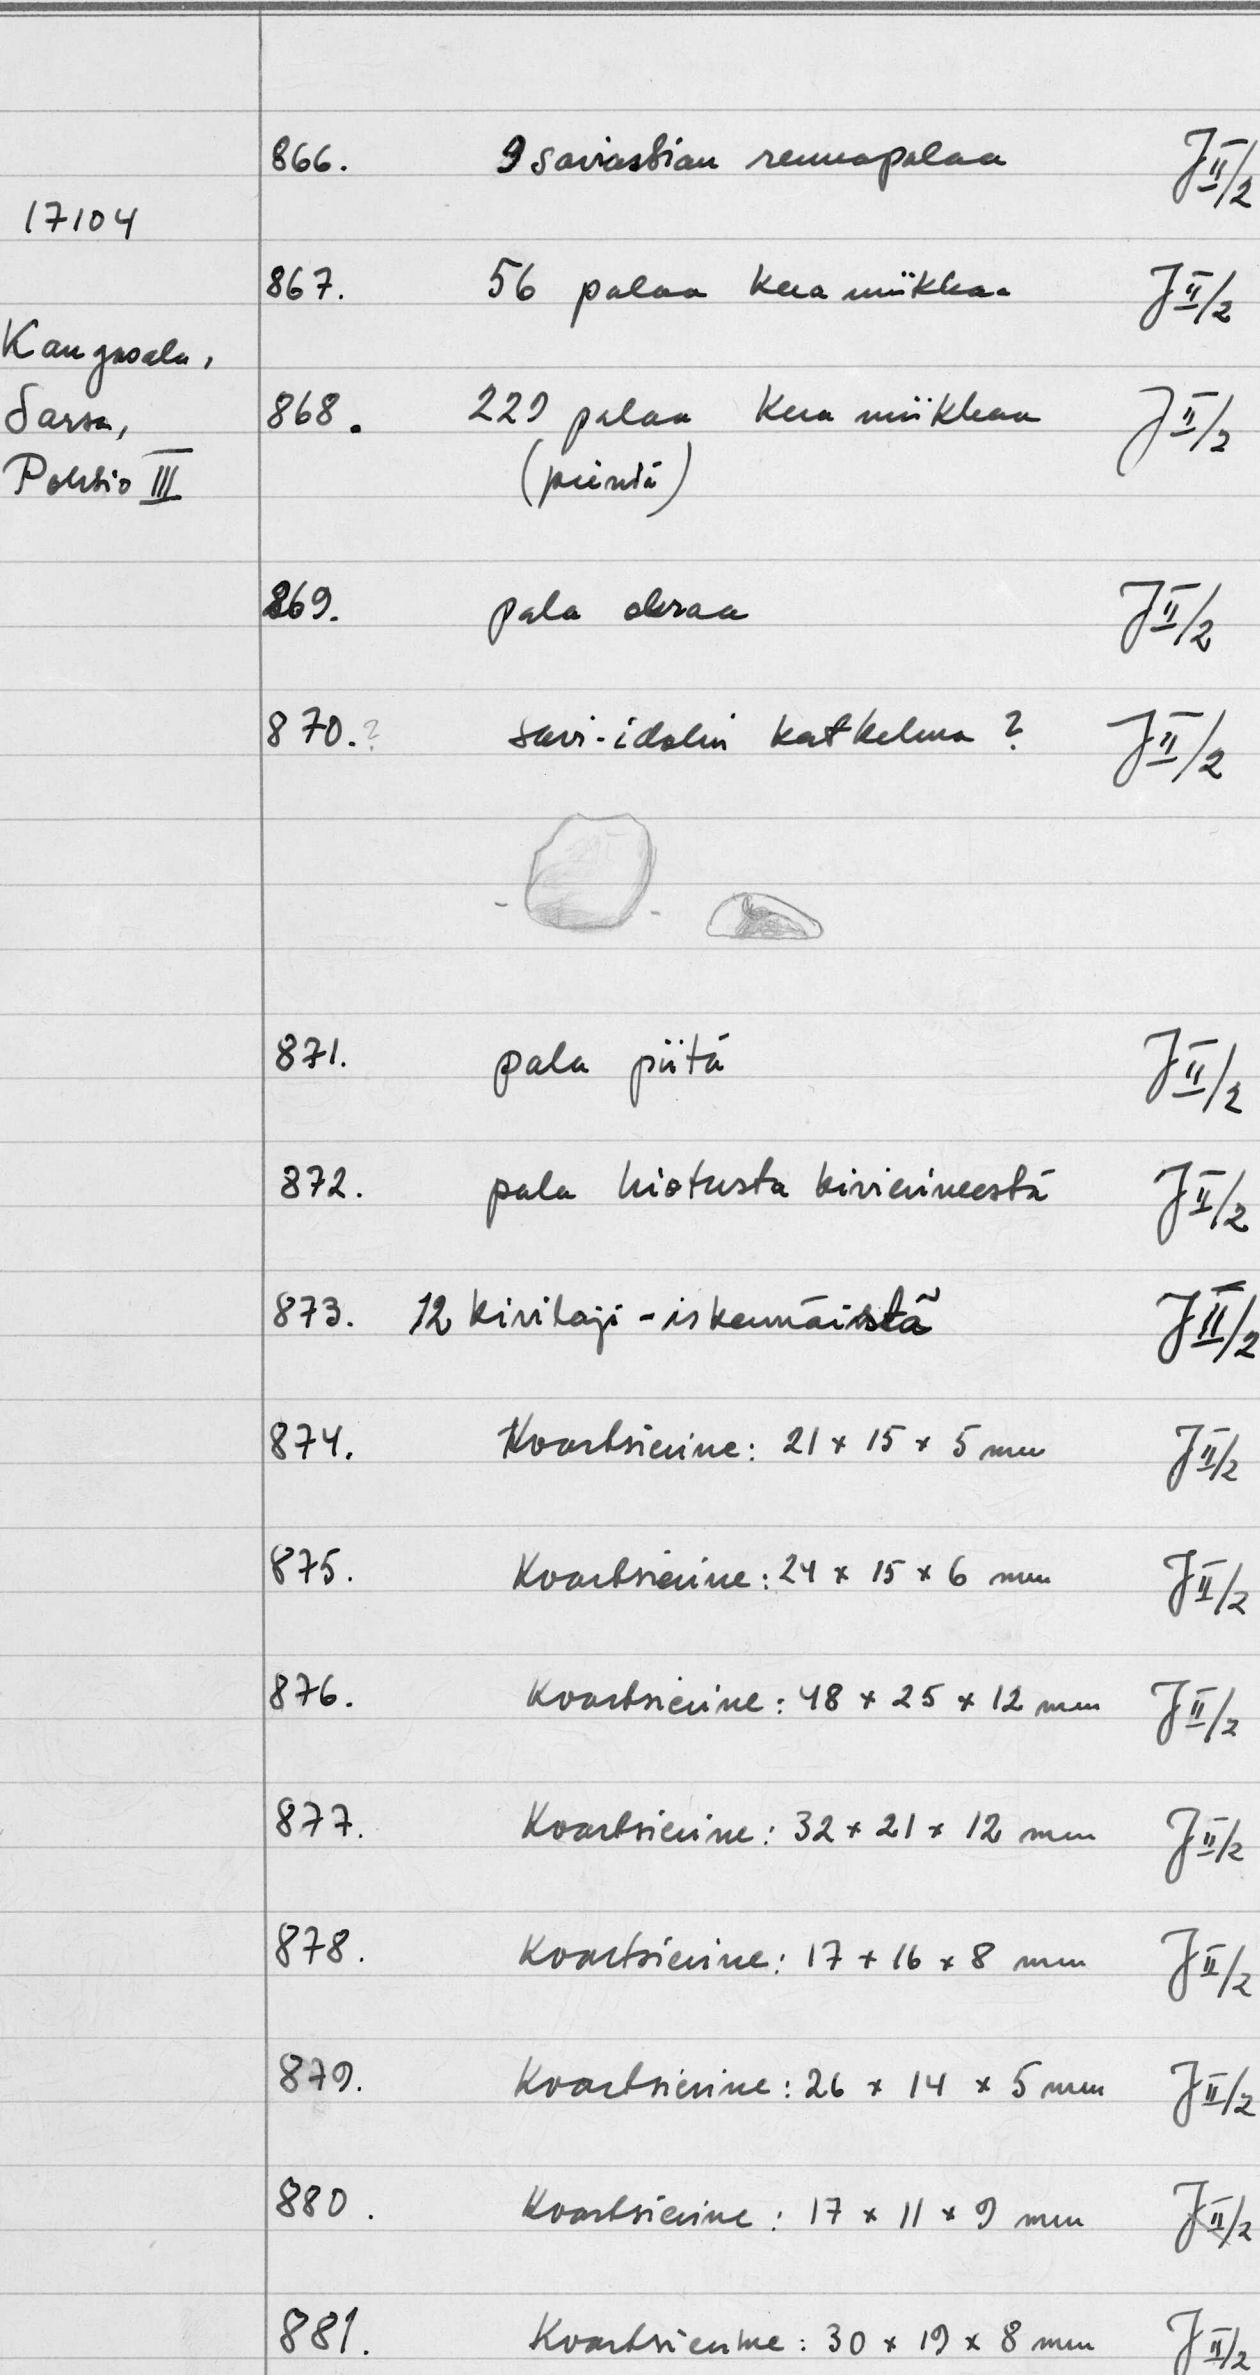 866. 9 saviastian reunapalaa J II/2
17104
867. 56 palaa keramiikkaa J II/2
Kangasala,
Sarsa,
868. 229 palaa keramiikkaa J II/2
(pientä)
III
869. pala okraa J II/2
870.? savi-idolin katkelma? J II/2
871. pala piitä J II/2
872. pala hiotusta kiviesineestä J II/2
873. 12 kivilaji-iskemäistä J II/2
874. Kvartsiesine: 21 x 15 x 5 mm J II/2
875. Kvartsiesine: 24 x 15 x 6 mm J II/2
876. Kvartsiesine: 48 x 25 x 12 mm J II/2
877. Kvartsiesine: 32 x 21 x 12 mm J II/2
878. Kvartsiesine: 17 x 16 x 8 mm J II/2
879. Kvartsiesine: 26 x 14 x 5 mm J II/2
880. Kvartsiesine: 17 x 11 x 9 mm J II/2
881. Kvartsiesine: 30 x 19 x 8 mm J II/2